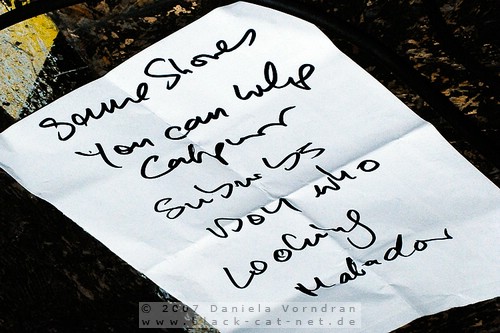 Same Shoes
You can
Suburbs
Boy who
Looking
Matador
© 2007 Daniela Vorndran
www.black-cat-net.de